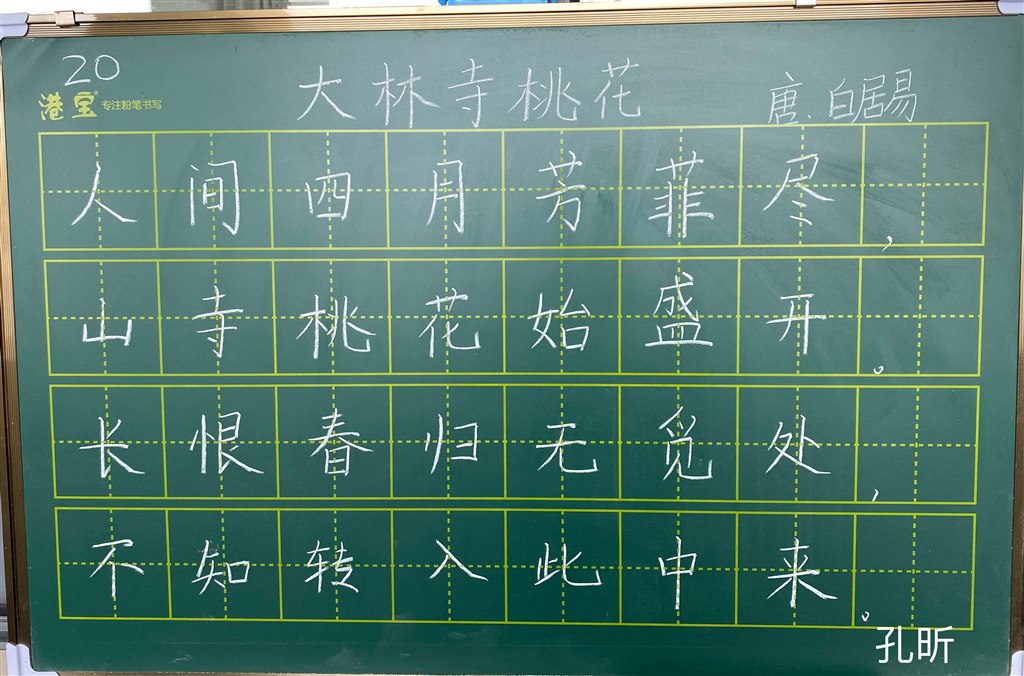 20
港宝 专注粉笔书写
大林寺桃花
唐、白居易
人间四月芳菲尽,
山寺桃花始盛开。
长恨春归无觅处,
不知转入此中来。
孔昕